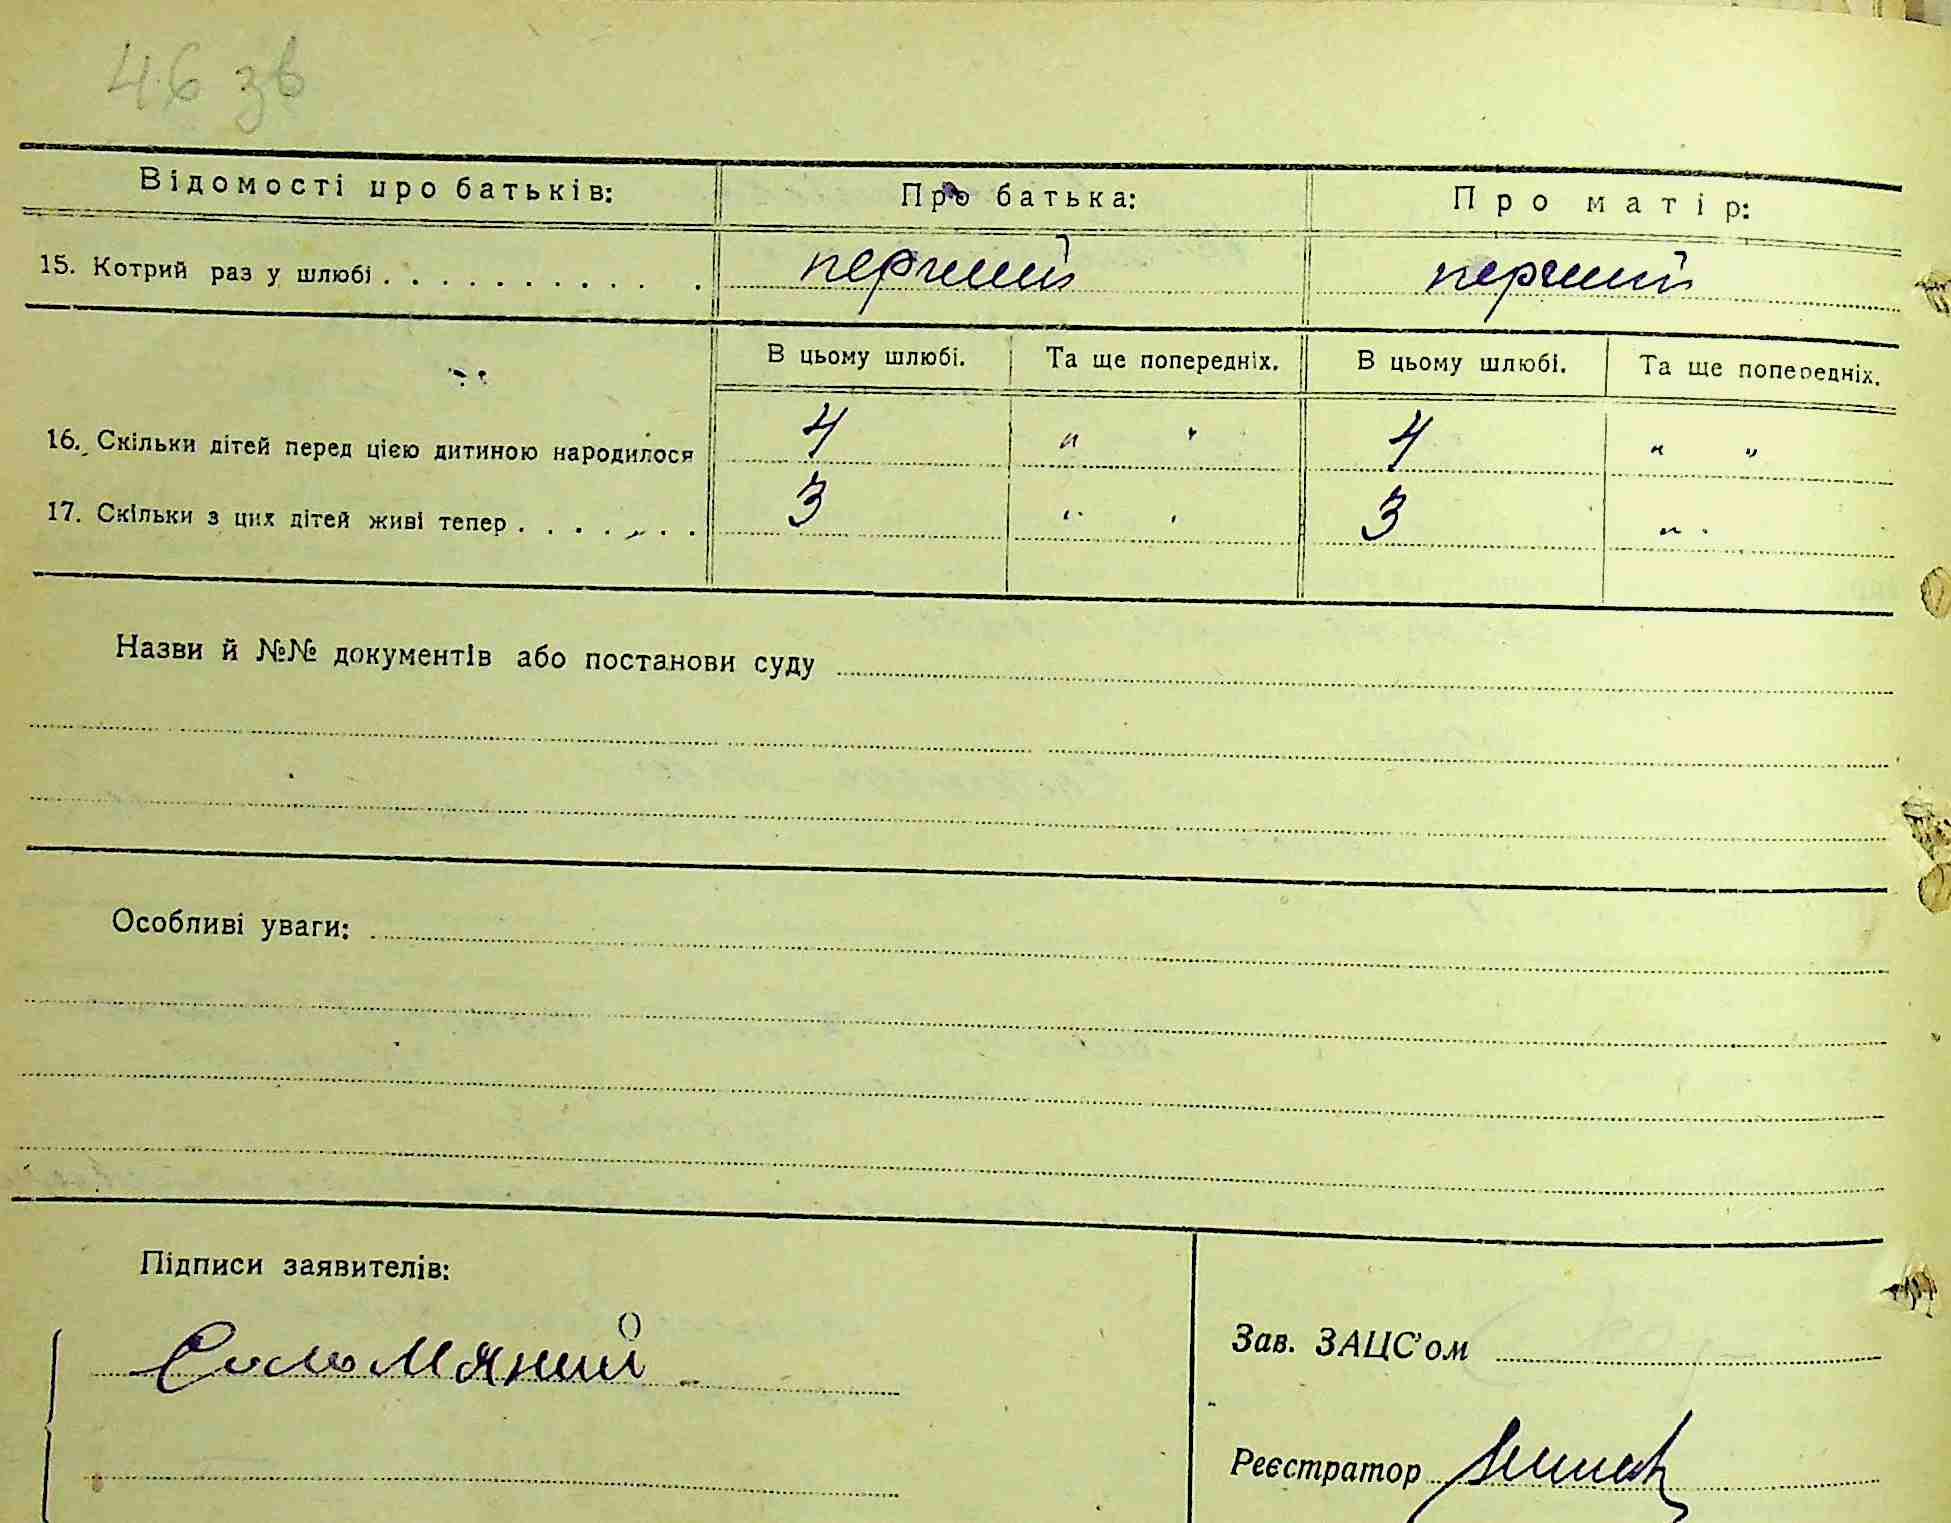 46 зв
Відомості про батьків: Про батька: Про матір:
15. Котрий раз у шлюбі . . . . . . . . . . . . перший перший
В цьому шлюбі. Та ще попередніх. В цьому шлюбі. Та ще попередніх.
16. Скільки дітей перед цією дитиною народилося 4 " " 4 " "
17. Скільки з цих дітей живі тепер . . . . . . . 3 " " 3 " "
Назви й №№ документів або постанови суду
Особливі уваги:
Підписи заявителів:
Зав. ЗАЦС'ом
Соломяний
Реєстратор